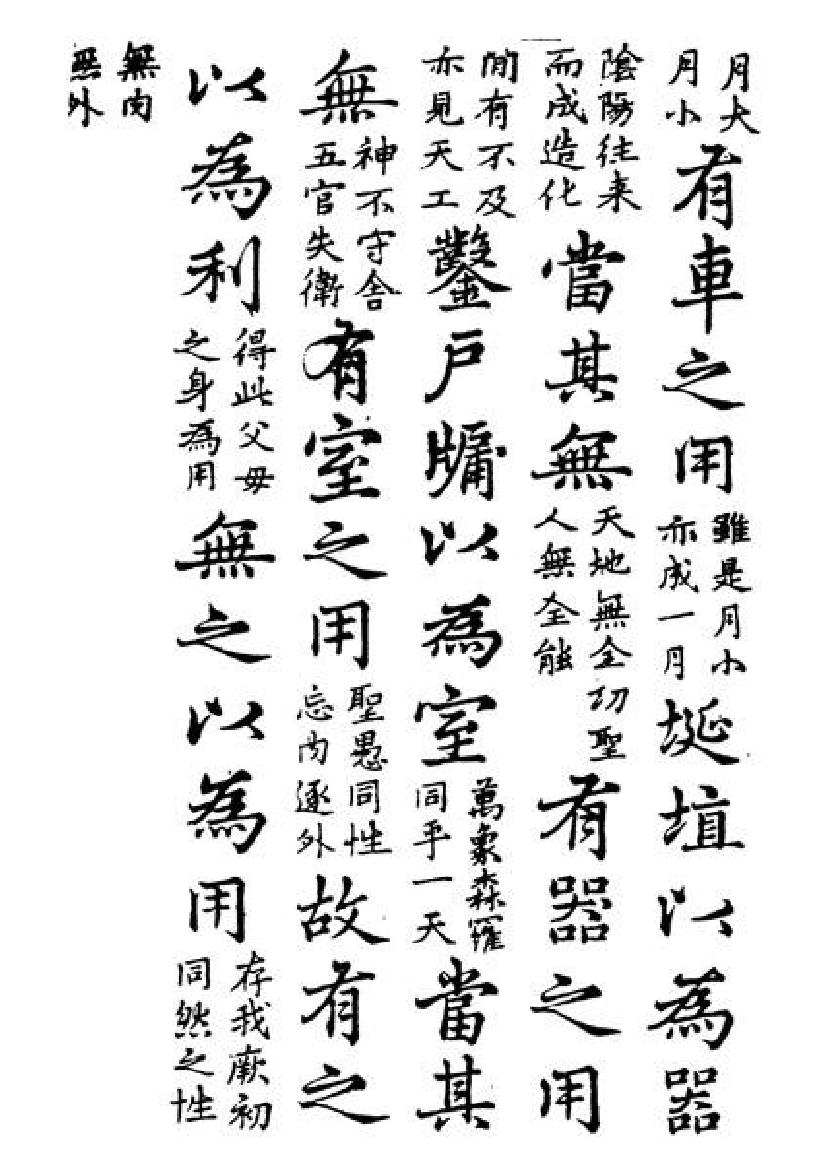 月大月小有車之用雖是月小亦成一月埏埴以為器
陰陽往来而成造化當其無天地無全功聖人無全能有器之用
間有不及亦見天工鑿戶牖以為室萬象森羅同乎一天當其
無神不守舍五官失衛有室之用聖愚同性忘內逐外故有之
以為利得此父母之身為用無之以為用存我厥初同然之性
無內無外